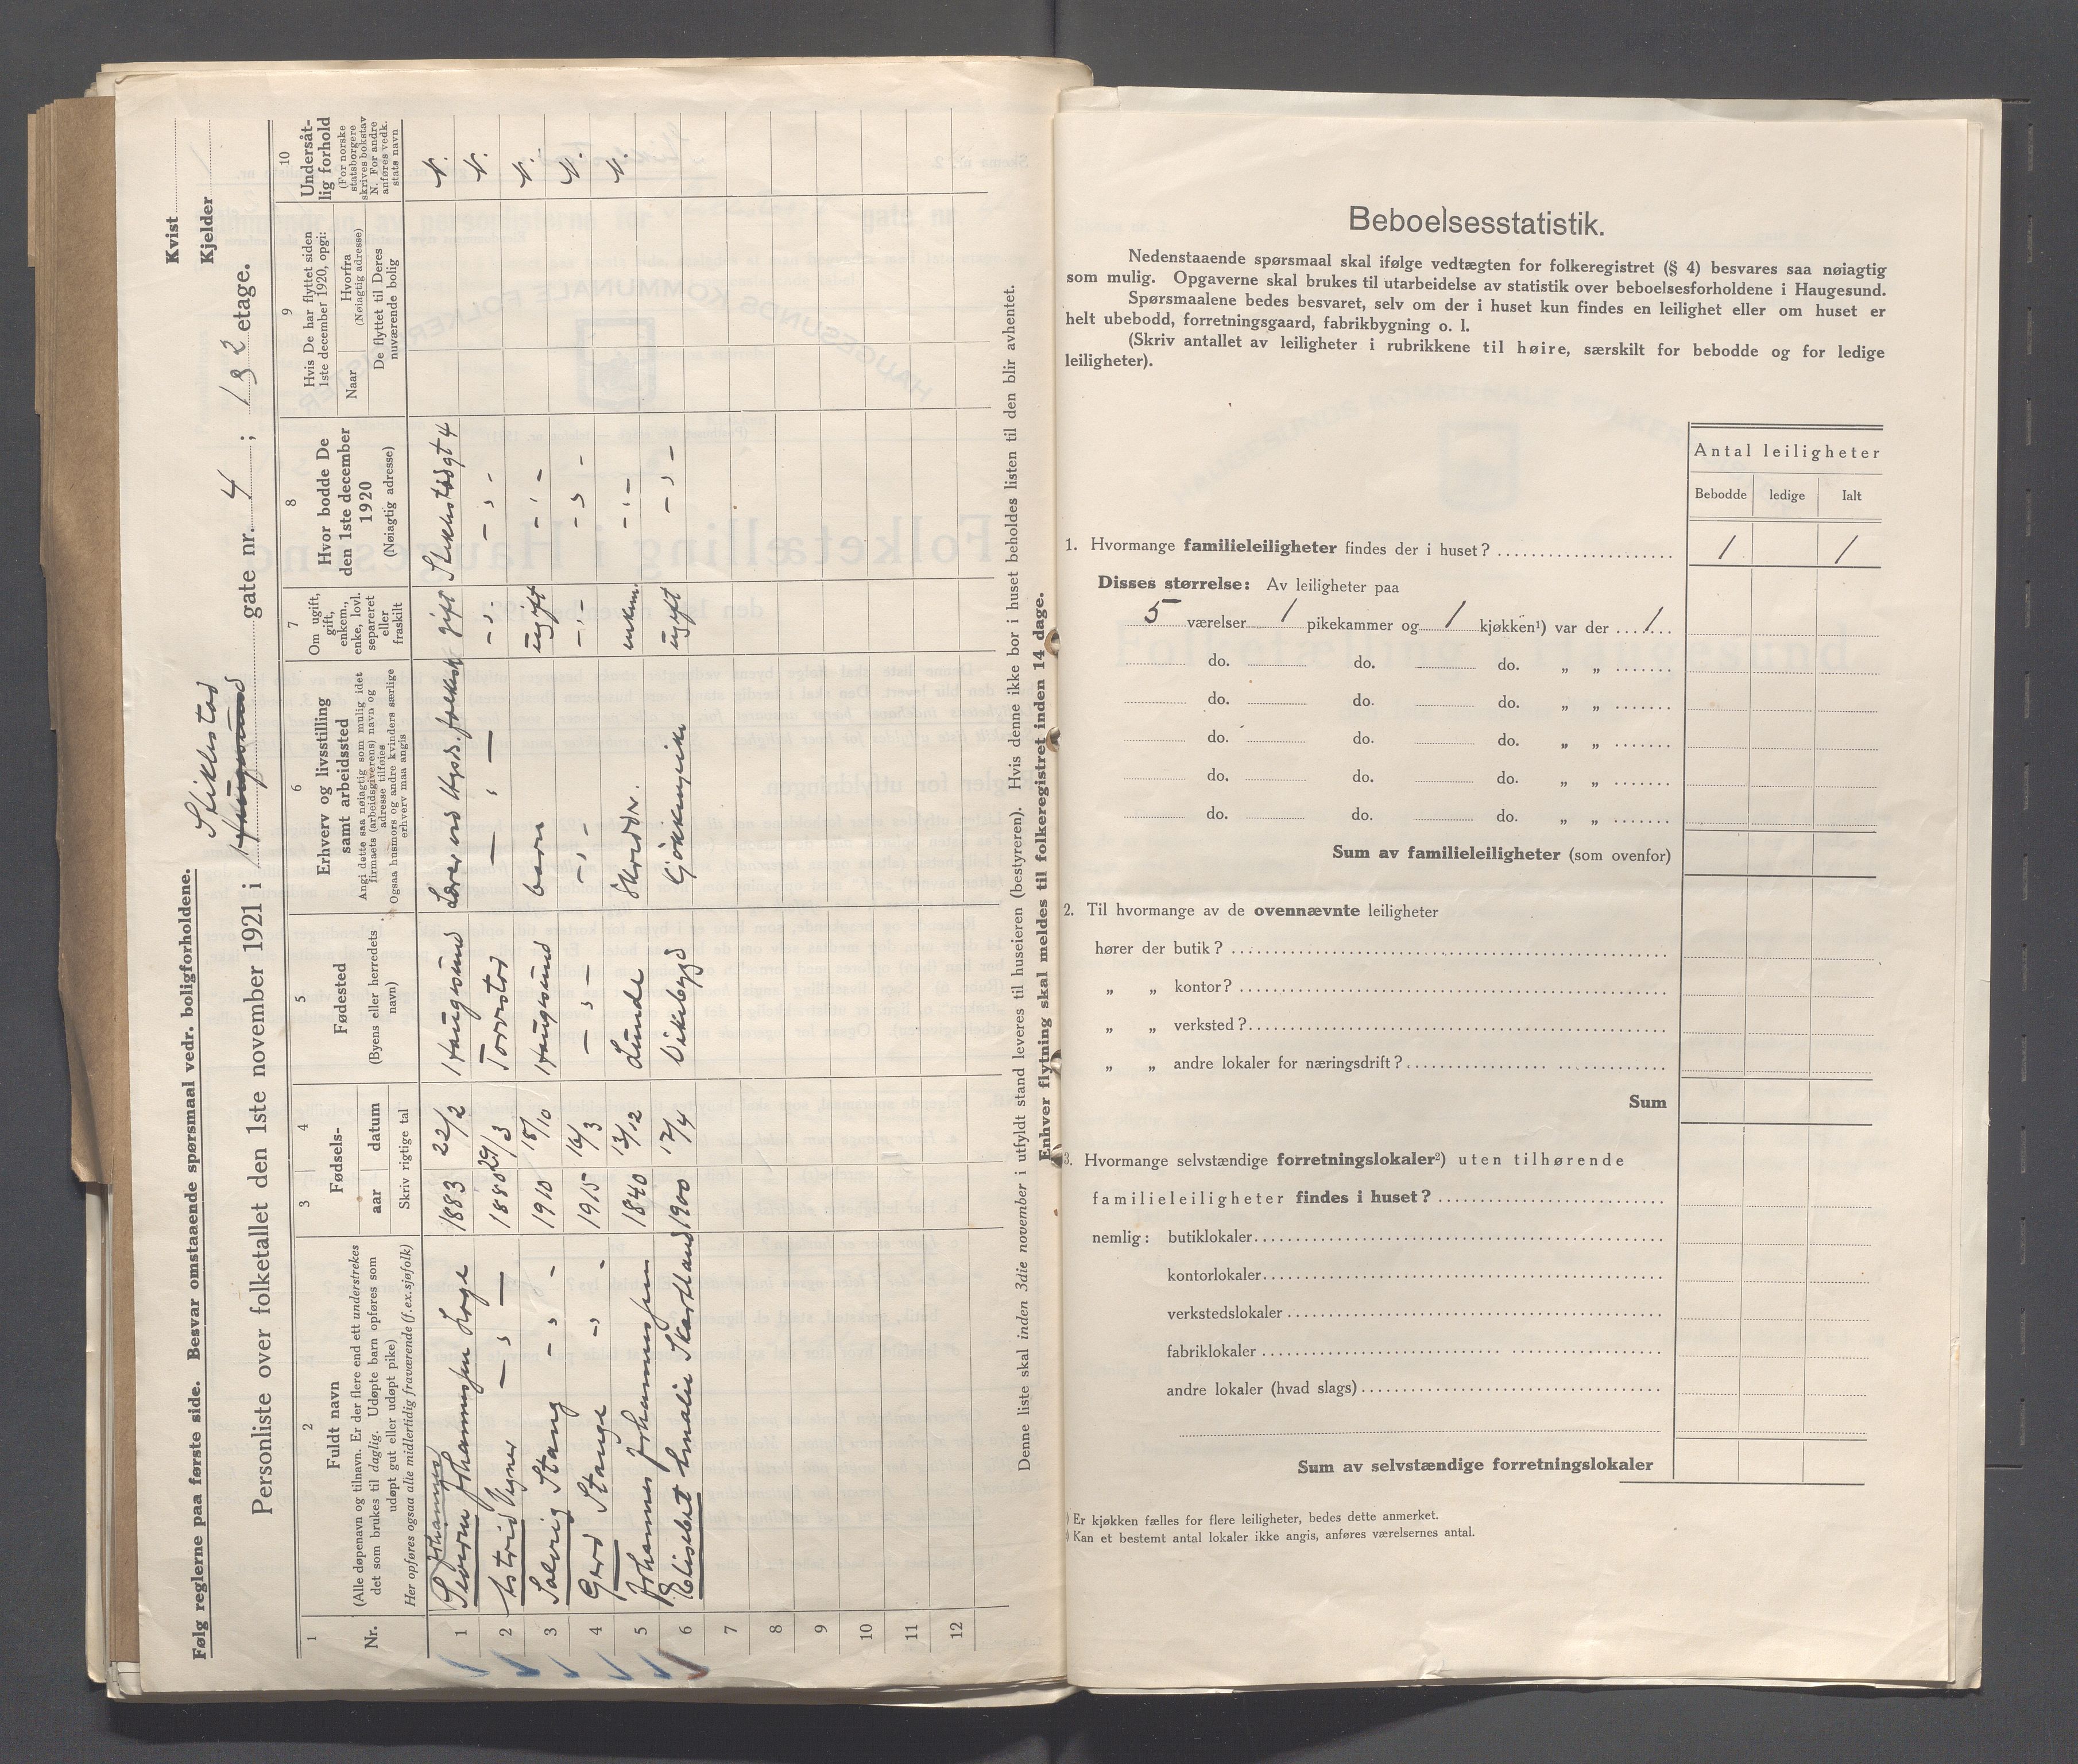 Følg reglerne paa første side. Besvar omstaaende spørsmaal vedr. boligforholdene.
Kvist
Kjelder
Stiklestad
Personliste over folketallet den 1ste november 1921 i Haugesund gate nr. 4 ; 1 & 2 etage.
1
Nr.
2
Fuldt navn
(Alle døpenavn og tilnavn. Er der flere end ett understrekes
det som brukes til daglig. Udøpte barn opføres som
udøpt gut eller udøpt pike)
Her opføres ogsaa alle midlertidig fraværende (f.ex. sjøfolk)
3 4
Fødsels-
aar datum
Skriv rigtige tal
5
Fødested
(Byens eller herredets
navn)
6
Erhverv og livsstilling
samt arbeidssted
Angi dette saa nøiagtig som mulig idet
firmaets (arbeidsgiverens) navn og
adresse tilføies
Ogsaa husmors og andre kvinders særlige
erhverv maa angis
7
Om ugift,
gift,
enkem.,
enke, lovl.
separeret
eller
fraskilt
8
Hvor bodde De
den 1ste december
1920
(Nøiagtig adresse)
9
Hvis De har flyttet siden
1ste december 1920, opgi:
Naar
Hvorfra
(Nøiagtig adresse)
De flyttet til Deres
nuværende bolig
10
Undersåt-
lig forhold
(For norske
statsborgere
skrives bokstav
N. For andre
anføres vedk.
stats navn
Johannes
1 Severin Johannessen Loge 1883 22/2 Haugesund Lærer ved Hgsds. folkesk gift Stiklestadgt 4 N.
2 Astrid Vegner — " — 1880 29/3 Torvestad — " — - " - - " - N.
3 Solveig Stang - " - 1910 18/10 Haugesund barn ugift - " - N.
4 Gerd Stange " - 1915 16/3 — " — - " - - " - - " - N.
5 Johannes Johannessen 1840 13/12 Lunde Skrædder. enkem. - " - N.
6 Elisabet Amalie Skartland 1900 17/4 Vikebygd Kjøkkenpike ugift - " -
7
8
9
10
11
12
Denne liste skal inden 3die november i utfyldt stand leveres til huseieren (bestyreren). Hvis denne ikke bor i huset beholdes listen til den blir avhentet.
Enhver flytning skal meldes til folkeregistret inden 14 dage.
Beboelsesstatistik.
Nedenstaaende spørsmaal skal ifølge vedtægten for folkeregistret (§ 4) besvares saa nøiagtig
som mulig. Opgaverne skal brukes til utarbeidelse av statistik over beboelsesforholdene i Haugesund.
Spørsmaalene bedes besvaret, selv om der i huset kun findes en leilighet eller om huset er
helt ubebodd, forretningsgaard, fabrikbygning o. l.
(Skriv antallet av leiligheter i rubrikkene til høire, særskilt for bebodde og for ledige
leiligheter).
Antal leiligheter
Bebodde ledige Ialt
1. Hvormange familieleiligheter findes der i huset? 1 1
Disses størrelse: Av leiligheter paa
5 værelser 1 pikekammer og 1 kjøkken¹) var der 1
do. do. do. „ „
do. do. do. „ „
do. do. do. „ „
do. do. do. „ „
do. do. do. „ „
Sum av familieleiligheter (som ovenfor)
2. Til hvormange av de ovennævnte leiligheter
hører der butik?
„ „ kontor?
„ „ verksted?
„ „ andre lokaler for næringsdrift?
Sum
3. Hvormange selvstændige forretningslokaler²) uten tilhørende
familieleiligheter findes i huset?
nemlig: butiklokaler
kontorlokaler
verkstedslokaler
fabriklokaler
andre lokaler (hvad slags)
Sum av selvstændige forretningslokaler
¹) Er kjøkken fælles for flere leiligheter, bedes dette anmerket.
²) Kan et bestemt antal lokaler ikke angis, anføres værelsernes antal.